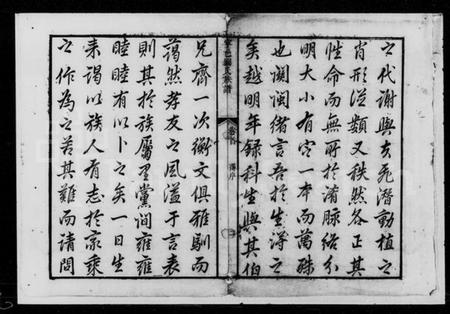 之代謝與夫飛潛動植之
肖形从類又秩然各正其
性命而無所於淆脉絡分
明大小有定一本而萬殊
也閩閩緒言吾於生得之
矣越明年錄科生與其伯
族譜
卷首
譜序
兄齊一次衡文俱雅馴而
藹然孝友之風溢于言表
則其於族屬里黨間雍雍
睦睦有以卜之矣一日生
来謁以族人有志於宗乘
之作為之苦其難而請問